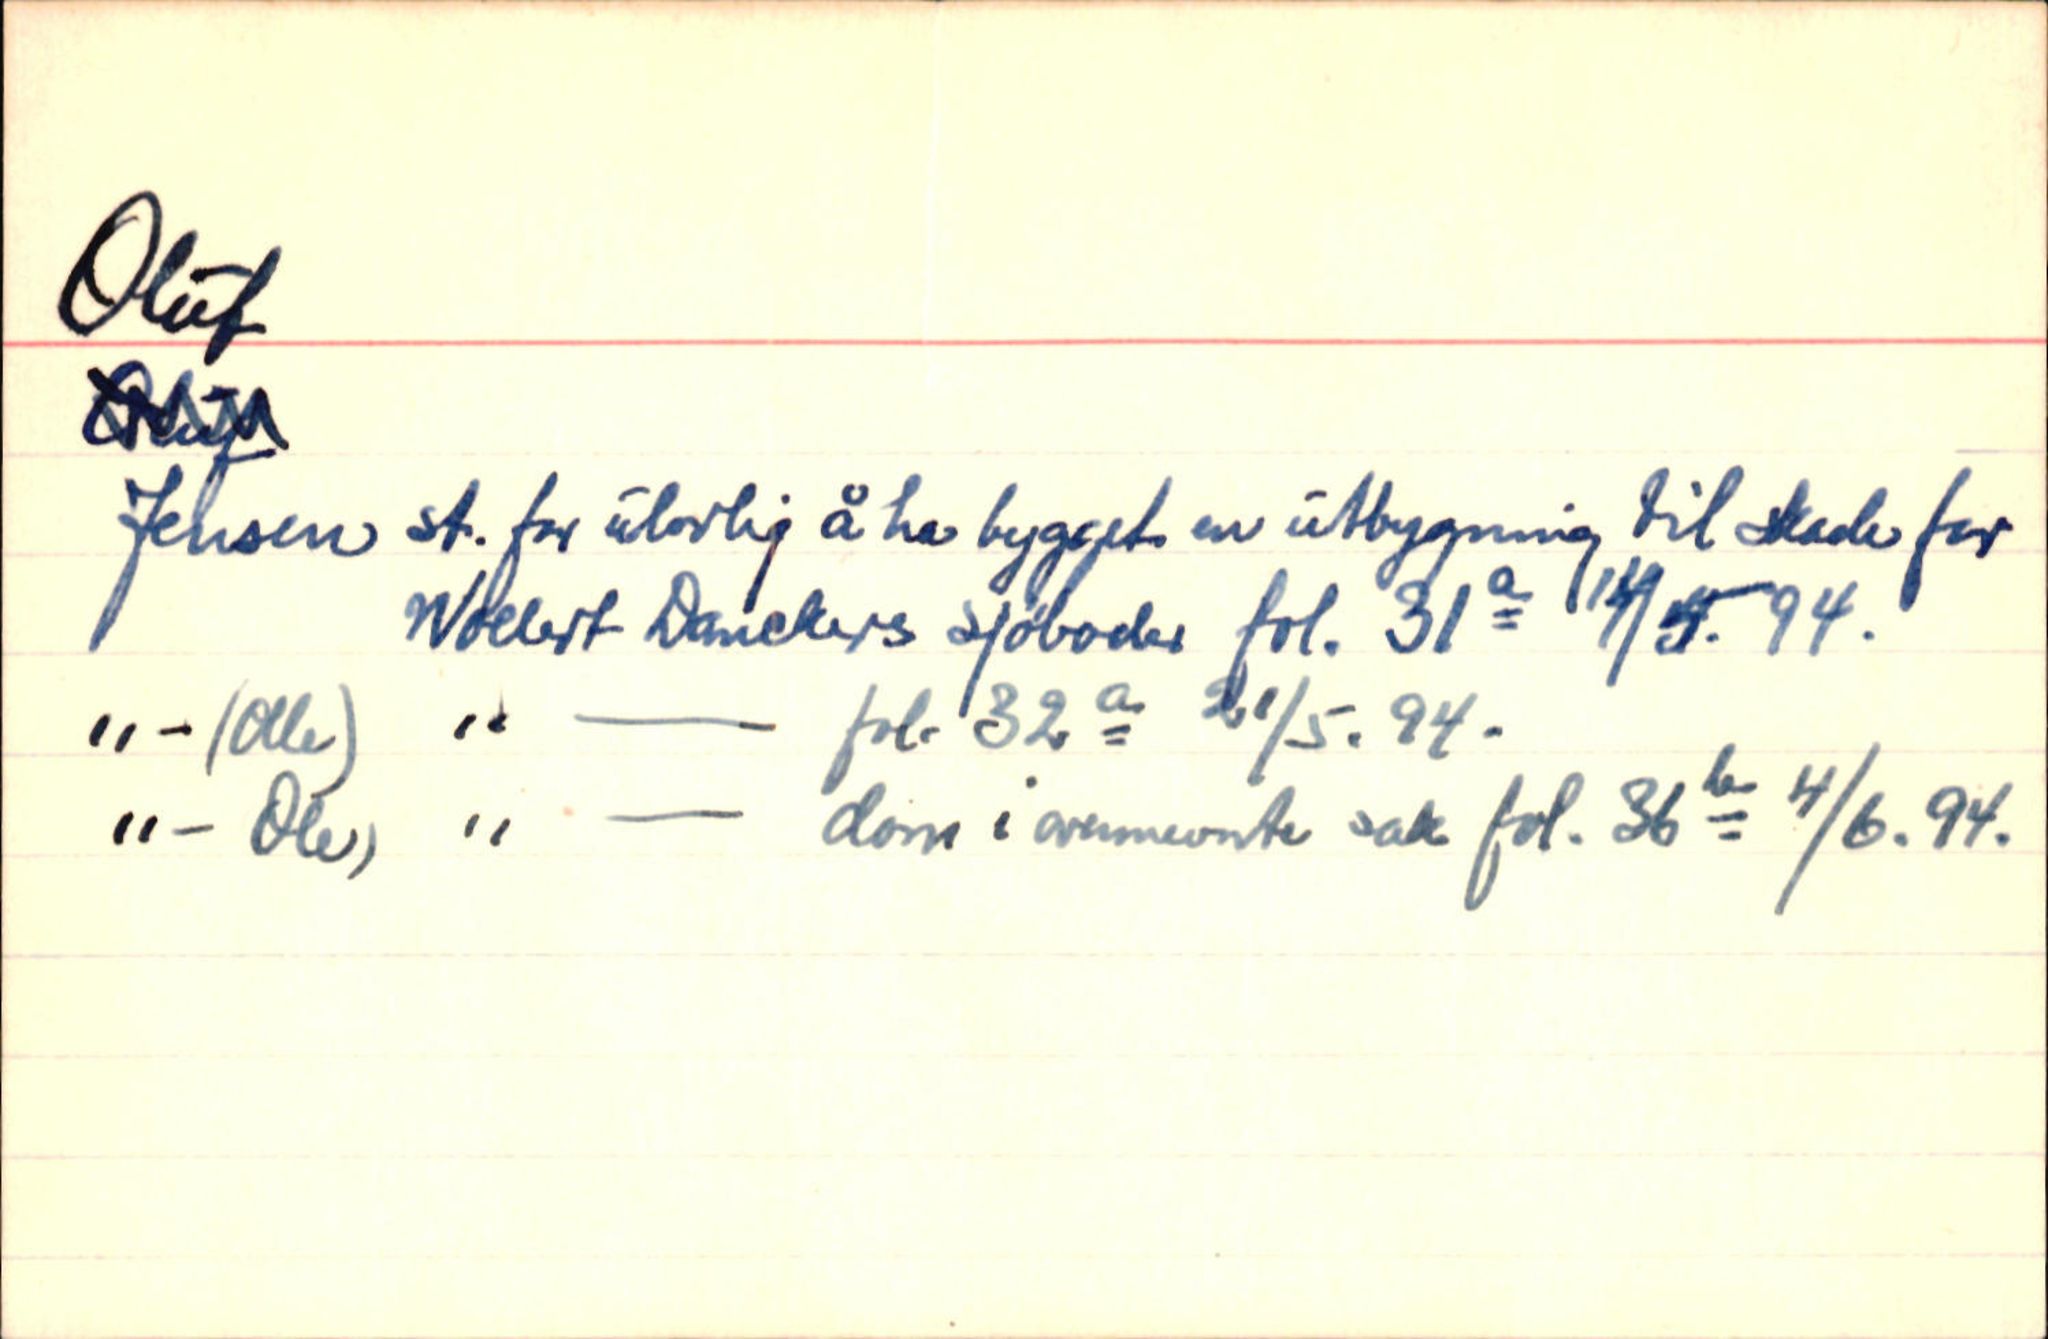 Oluf
Oluf
Jensen st. for ulovlig å ha bygget en utbygning til skade for
Wollert Danckers sjøboder fol. 31a 14/5. 94.
"-(Olle) " — fol. 32a 21/5. 94.
"- Ole) " — dom i ovennevnte sak fol. 36b 4/6. 94.